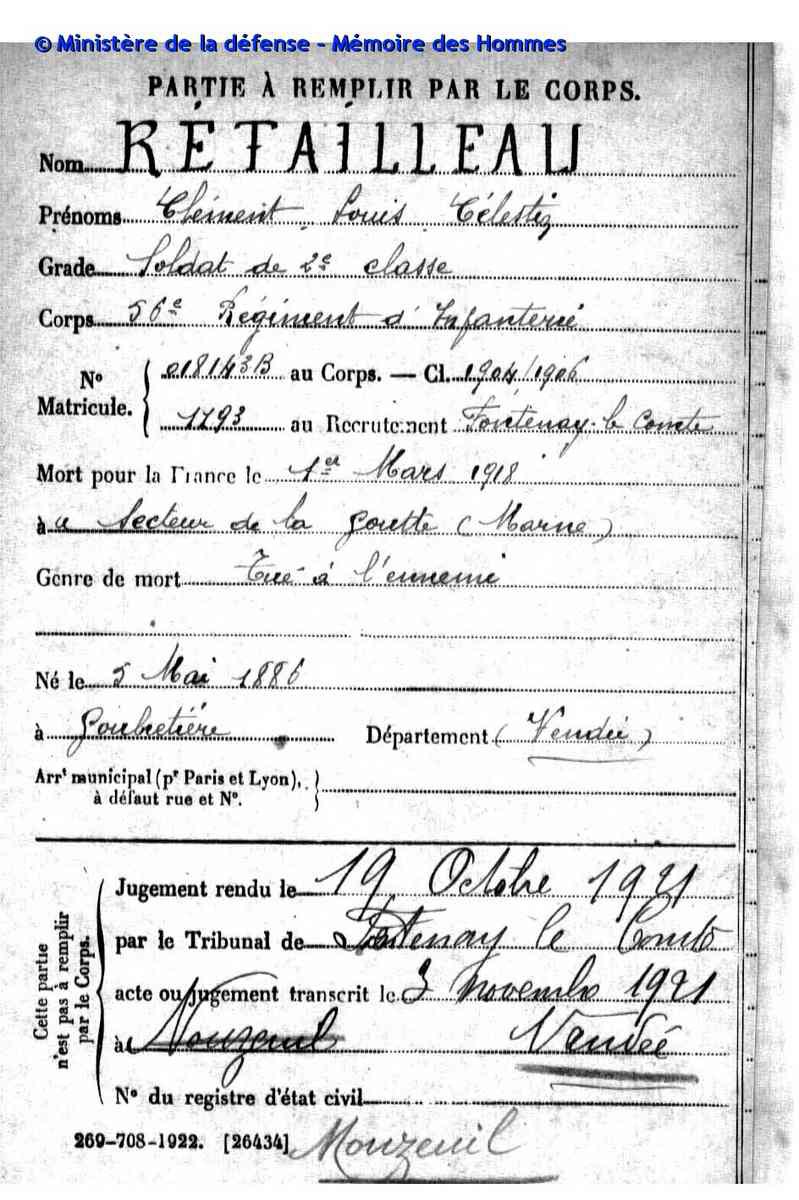 © Ministère de la défense - Mémoire des Hommes
PARTIE À REMPLIR PAR LE CORPS.
Nom RÉTAILLEAU
Prénoms Clément Louis Célestin
Grade Soldat de 2e classe
Corps 56e Régiment d'Infanterie
No Matricule. 018143B au Corps. — Cl. 1904/1906
1793 au Recrutement Fontenay-le Comte
Mort pour la France le 1er Mars 1918
à Secteur de la (Marne)
Genre de mort Tué à l'ennemi
Né le 5 Mai 1886
à Gaubretière Département (Vendée)
Arrt municipal (pr Paris et Lyon),
à défaut rue et No.
Cette partie n'est pas à remplir par le Corps.
Jugement rendu le 19 Octobre 1921
par le Tribunal de Fontenay le Comte
acte ou jugement transcrit le 3 novembre 1921
à Nouzeuil Vendée
No du registre d'état civil
269-708-1922. [26434] Mouzeuil